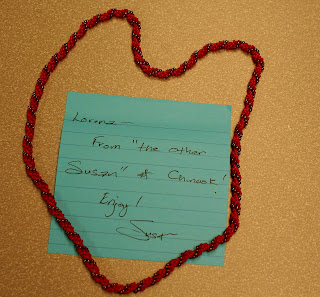 Lorenz —
From "the other
Susan" at Chinook!
Enjoy!
Susan